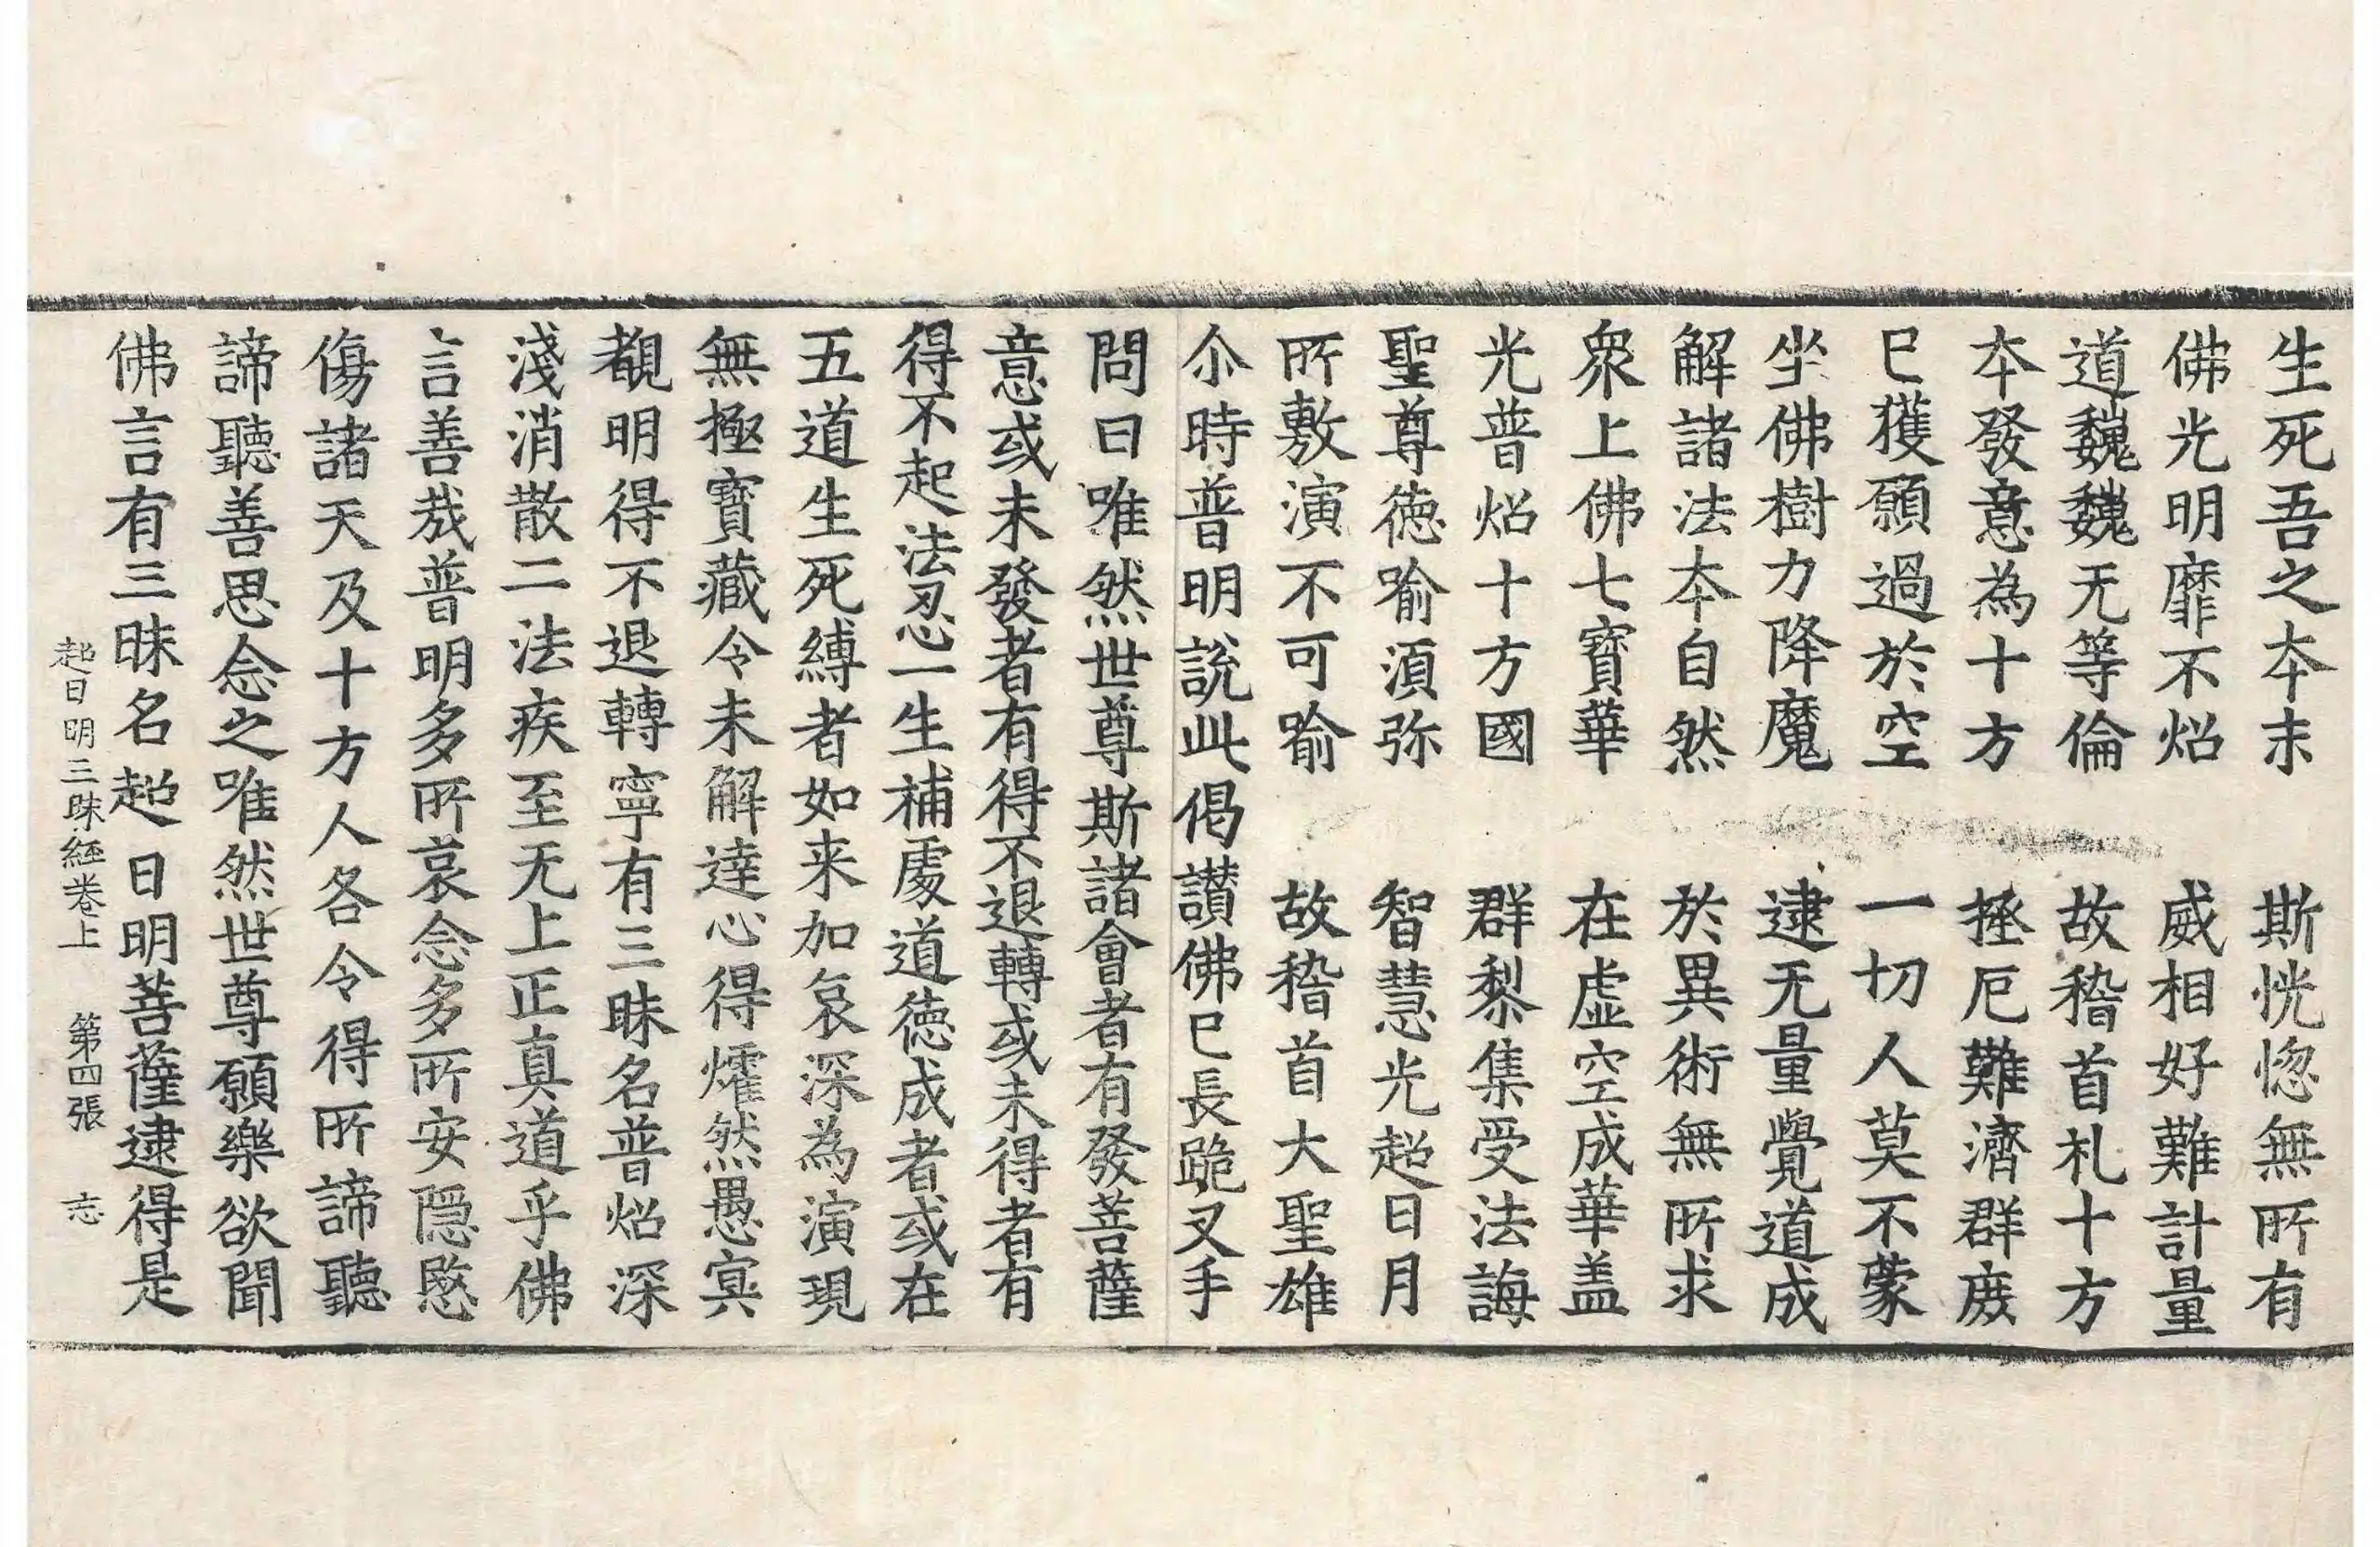 生死吾之夲末　斯恍惚無所有
佛光明靡不炤　威相好難計量
道巍巍无等倫　故稽首礼十方
夲發意為十方　拯厄難濟群庻
已獲願過於空　一切人莫不蒙
坐佛樹力降魔　逮无量覺道成
解諸法夲自然　於異術無所求
衆上佛七寳華　在虚空成華盖
光普炤十方國　群黎集受法誨
聖尊徳喻湏弥　智慧光超日月
所敷演不可喻　故稽首大聖雄
尒時普明說此偈讃佛已長跪叉手
問曰唯然世尊斯諸會者有發菩薩
意或未發者有得不退轉或未得者有
得不起法忍一生補處道徳成者或在
五道生死縛者如来加哀深為演現
無極寳藏令未解達心得燿然愚冥
覩明得不退轉寧有三昧名普炤深
淺消散二法疾至无上正真道乎佛
言善哉普明多所哀念多所安隠愍
傷諸天及十方人各令得所諦聽
諦聽善思念之唯然世尊願樂欲聞
佛言有三昧名超日明菩薩逮得是
超日明三昧經卷上　第四張　志